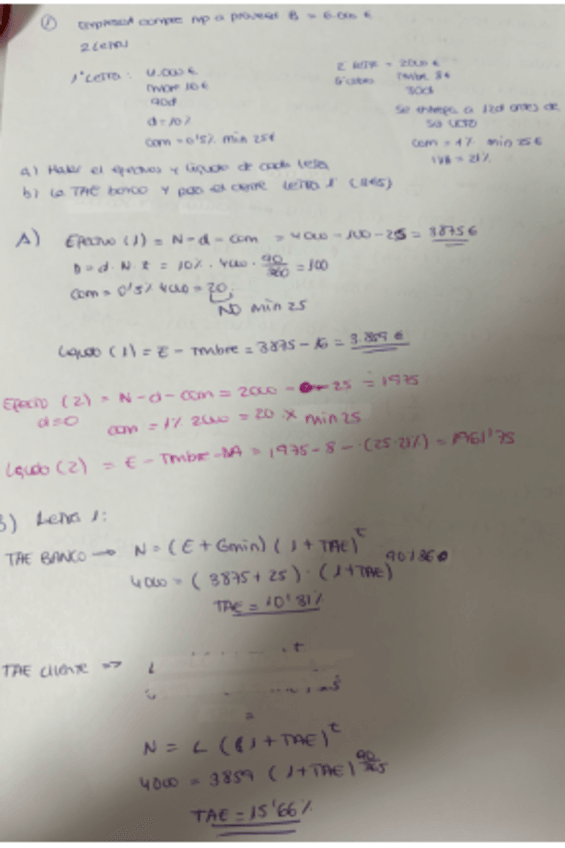 ① empresa A compra mp a proveedor B = 6.000 €
2 Letras
1ª Letra: 4.000 €
timbre 10 €
90d
d = 10%
com = 0'5% min 25€
2 letra = 2000 €
timbre 8€
30d
Se entrega a 12d antes de
su vcto
com = 1% min 25€
IVA = 21%
a) Hallar el efectivo y líquido de cada letra
b) La TAE banco y para el cliente letra 1 (365)
A) Efectivo (1) = N - d - com = 4000 - 100 - 25 = 3875€
D = d · N · t = 10% · 4000 · 90/360 = 100
com = 0'5% 4000 = 20
NO min 25
Líquido (1) = E - Timbre = 3875 - 16 = 3.859 €
Efectivo (2) = N - d - com = 2000 - 0 - 25 = 1975
d=0 com = 1% 2000 = 20 X min 25
Líquido (2) = E - Timbre - IVA = 1975 - 8 - (25·21%) = 1961'75
B) Letra 1:
TAE BANCO → N = (E + Gmin) (1 + TAE)^t
4000 = (3875 + 25) · (1 + TAE)^90/360
TAE = 10'81%
TAE cliente =>
N = L (1 + TAE)^t
4000 = 3859 (1 + TAE)^90/365
TAE = 15'66%